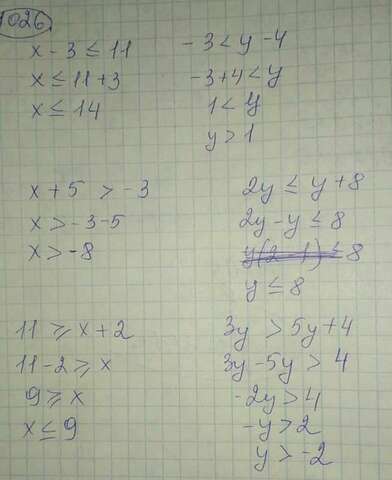 1026
x - 3 ≤ 11
x ≤ 11 + 3
x ≤ 14
- 3 < y - 4
-3 + 4 < y
1 < y
y > 1
x + 5 > -3
x > -3 - 5
x > -8
2y ≤ y + 8
2y - y ≤ 8
y(2 - 1) ≤ 8
y ≤ 8
11 ≥ x + 2
11 - 2 ≥ x
9 ≥ x
x ≤ 9
3y > 5y + 4
3y - 5y > 4
-2y > 4
-y > 2
y > -2